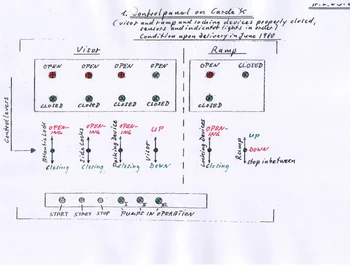 1. Controlpanel on Cardek
(visor and ramp and locking devices properly closed,
sensors and indicator lights in order)
Condition upon delivery in June 1980
Visor
Ramp
OPEN OPEN OPEN OPEN
OPEN CLOSED
CLOSED CLOSED CLOSED CLOSED
CLOSED
Controllevers
Atlantic Lock
OPEN-
ING
Closing
Side Locks
OPEN-
ING
Closing
Locking Device
OPEN-
ING
Closing
Visor
UP
DOWN
Locking Devices
OPEN-
ING
Closing
Ramp
UP
DOWN
stop inbetween
START START STOP
I II III
PUMPS IN OPERATION